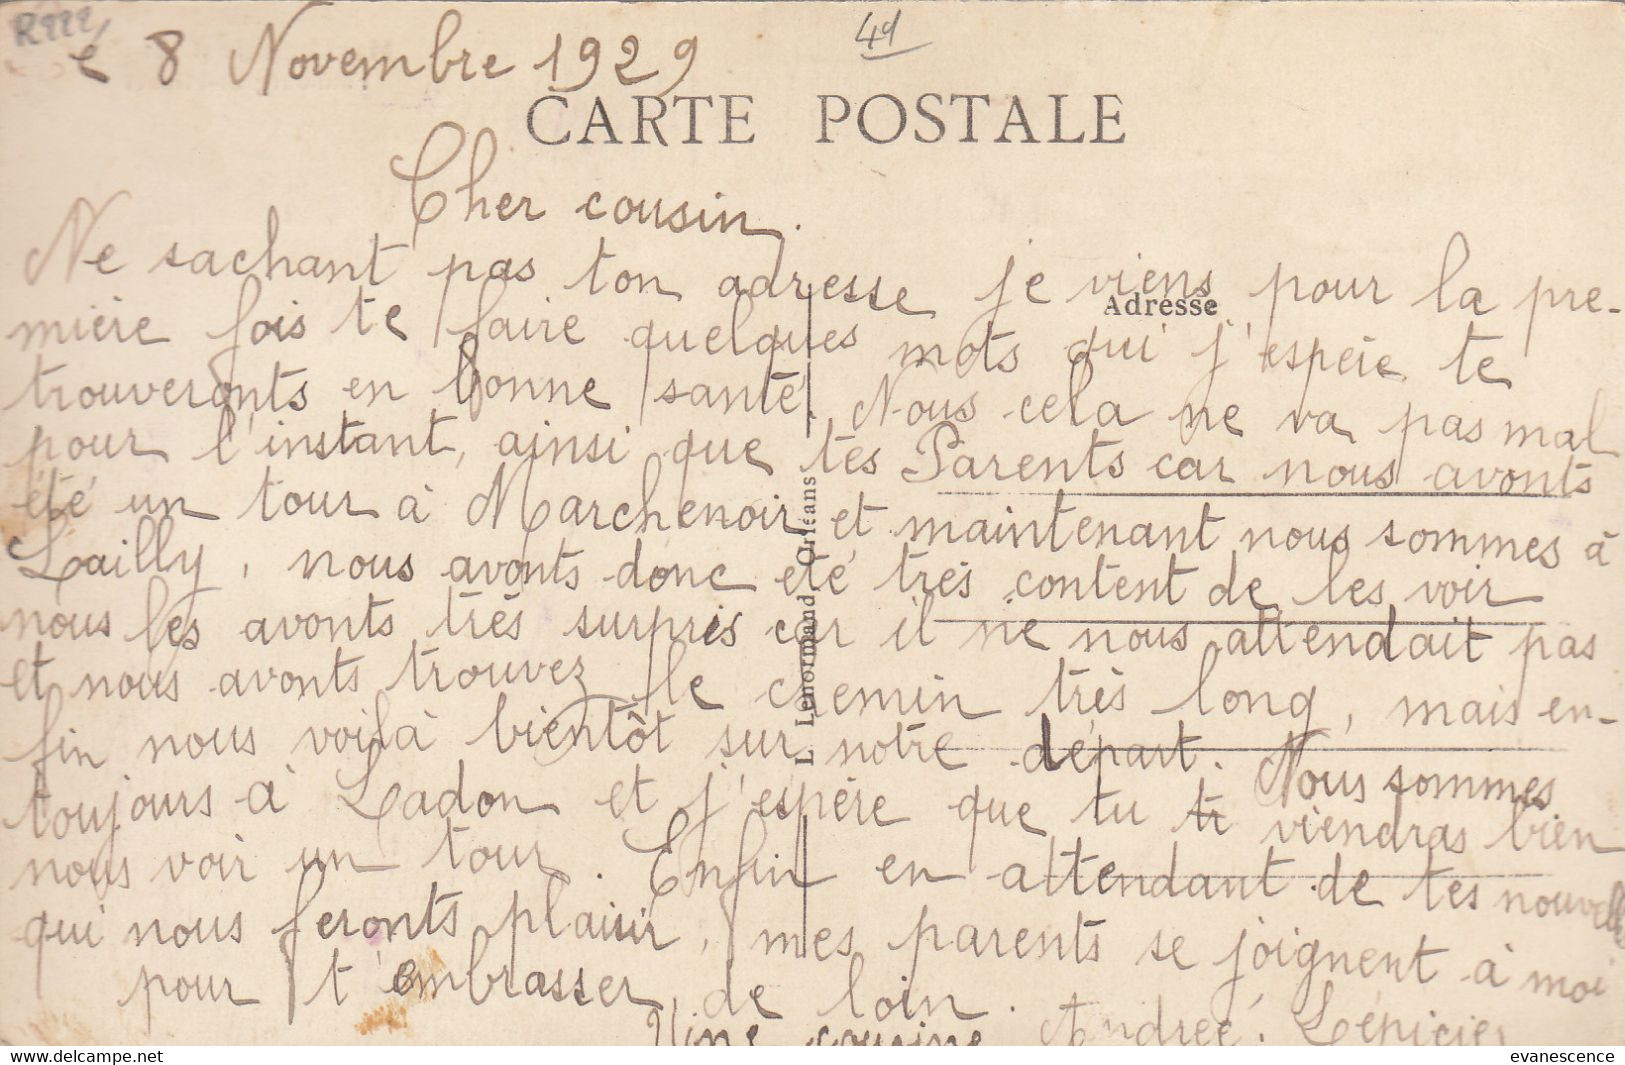 R222
e 8 Novembre 1929
4d
CARTE POSTALE
Cher cousin.
Ne sachant pas ton adresse je viens pour la pre-
mière fois te faire quelques mots qui j'espère te
trouveronts en bonne santé. Nous cela ne va pas mal
pour l'instant, ainsi que tes Parents car nous avonts
été un tour à Marchenoir et maintenant nous sommes à
Lailly, nous avonts donc été très content de les voir
nous les avonts très surpris car il ne nous attendait pas
et nous avonts trouvez le chemin très long, mais en-
fin nous voilà bientôt sur notre départ. Nous sommes
toujours à Ladon et j'espère que tu tr viendras bien
nous voir un tour. Enfin en attendant de tes nouvelles
qui nous feronts plaisir, mes parents se joignent à moi
pour t'embrasser de loin.
cousine Andrée. Lépicier
Adresse
L. Lenormand, Orléans
evanescence